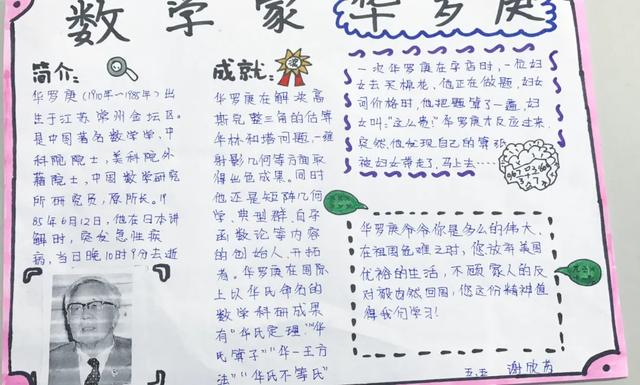 数学家 华罗庚
简介:
华罗庚(1910年—1985年)出
生于江苏常州金坛区。
是中国著名数学学,中
科院院士,美科院外
籍院士,中国数学研究
所研究员,原所长。19
85年6月12日,他在日本讲
解时,突发急性疾
病,当日晚10时9分去逝
成就:
华罗庚在解决高
斯完整三角的估算
华林和塔问题,一维
射影几何等方面取
得出色成果。同时
他还是矩阵几何
学、典型群、自守
函数论等内容
的创始人、开拓
者。华罗庚在国际
上以华氏命名的
数学科研成果
有“华氏定理”“华
氏算子”“华—王方
法”“华氏不等氏”
一次华罗庚在守店时,一位妇
女去买棉花,他正在做题,妇女
问价格时,他把题答了一遍,妇
女叫:“这么贵!”华罗庚才反应过来,
突然,他发现自己的算纸
被妇女带走了,马上去……
华罗庚爷爷你是多么的伟大,
在祖国危难之时,您放弃美国
优裕的生活,不顾家人的反
对毅然回国,您这份精神值
得我们学习!
五.五 谢欣芮